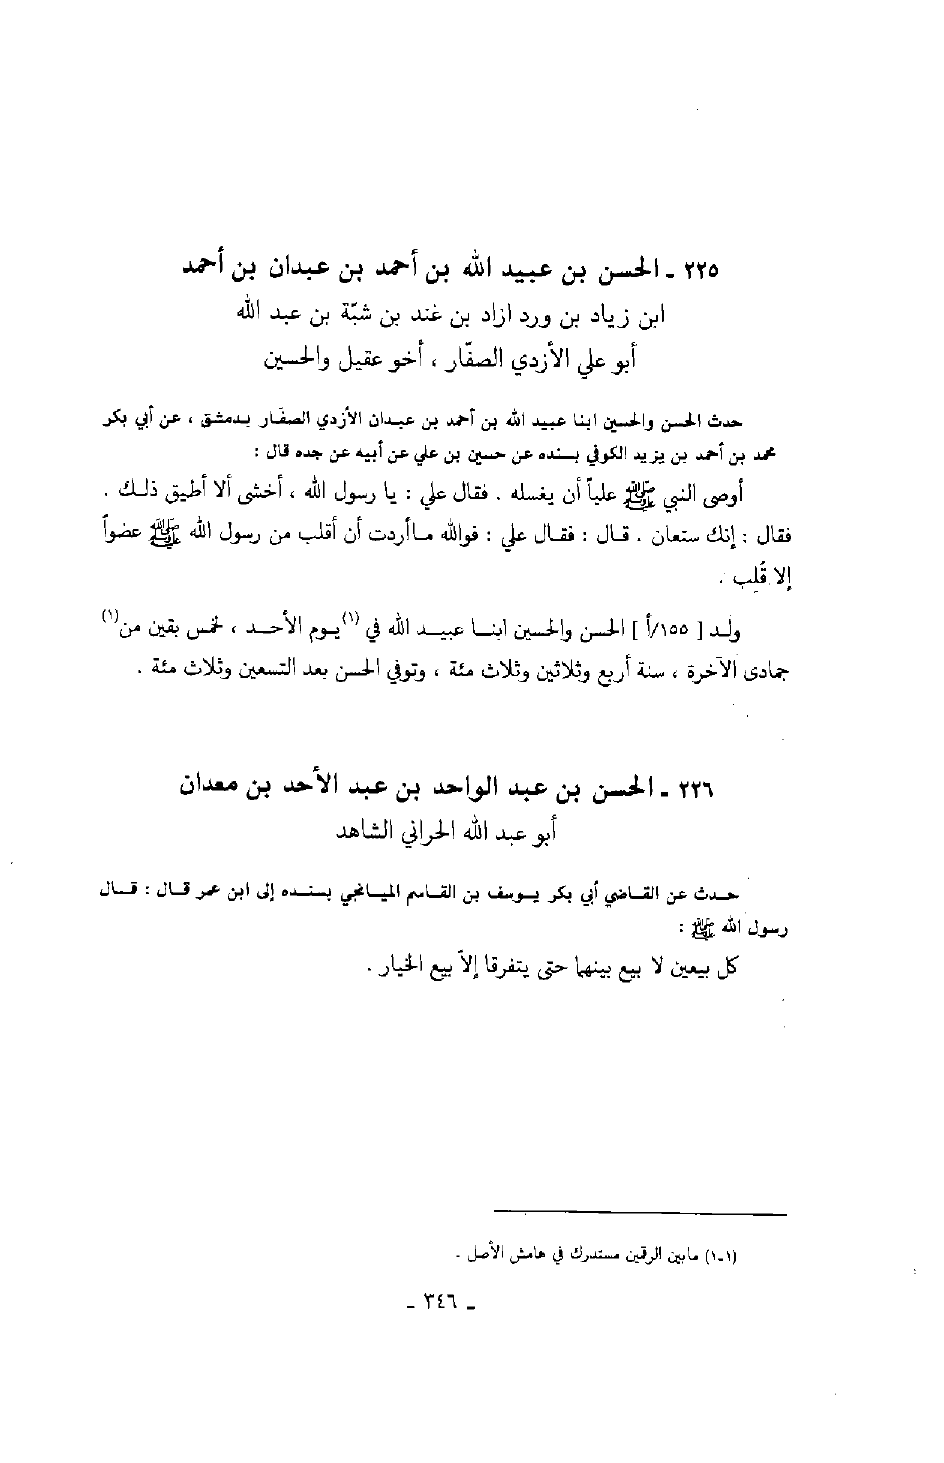 ٢٢٥ ـ الحسن بن عبيد الله بن أحمد بن عبدان بن أحمد
ابن زياد بن ورد ازاد بن غند بن شبّة بن عبد الله
أبو علي الأزدي الصفّار ، أخو عقيل والحسين
حدث الحسن والحسين ابنا عبيد الله بن أحمد بن عبدان الأزدي الصفّار بدمشق ، عن أبي بكر
محمد بن أحمد بن يزيد الكوفي بسنده عن حسين بن علي عن أبيه عن جده قال :
أوصى النبي ﷺ علياً أن يغسله . فقال علي : يا رسول الله ، أخشى ألا أطيق ذلك .
فقال : إنك ستعان . قال : فقال علي : فوالله ماأردت أن أقلب من رسول الله ﷺ عضواً
إلا قُلِب .
ولد [ ١٥٥/أ ] الحسن والحسين ابنا عبيد الله في (١)يوم الأحد ، لخمس بقين من(١)
جمادى الآخرة ، سنة أربع وثلاثين وثلاث مئة ، وتوفي الحسن بعد التسعين وثلاث مئة .
٢٢٦ ـ الحسن بن عبد الواحد بن عبد الأحد بن معدان
أبو عبد الله الحراني الشاهد
حدث عن القاضي أبي بكر يوسف بن القاسم الميانجي بسنده إلى ابن عمر قال : قال
رسول الله ﷺ :
كل بيعين لا بيع بينهما حتى يتفرقا إلاّ بيع الخيار .
(١-١) مابين الرقمين مستدرك في هامش الأصل .
ـ ٣٤٦ ـ